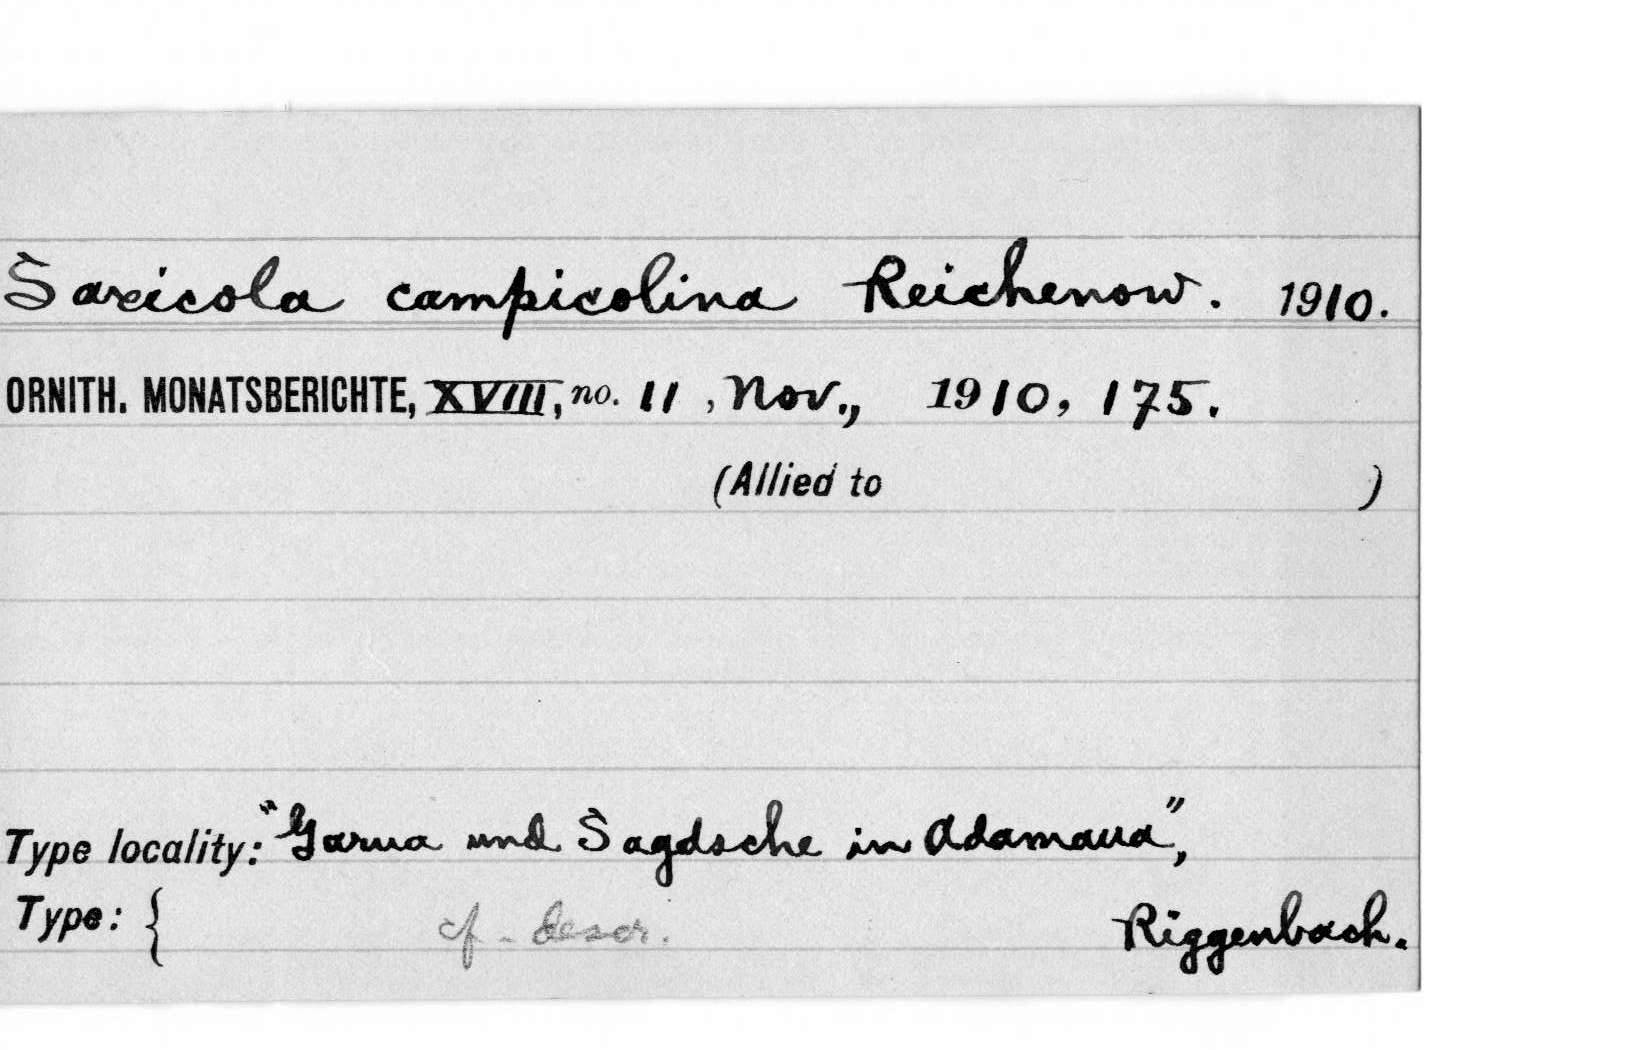 Saxicola campicolina Reichenow. 1910.
ORNITH. MONATSBERICHTE, XVIII, no. 11, Nov., 1910, 175.
(Allied to )
Type locality: "Garua und Sagdsche in Adamaua",
Type: { cf. descr. Riggenbach.